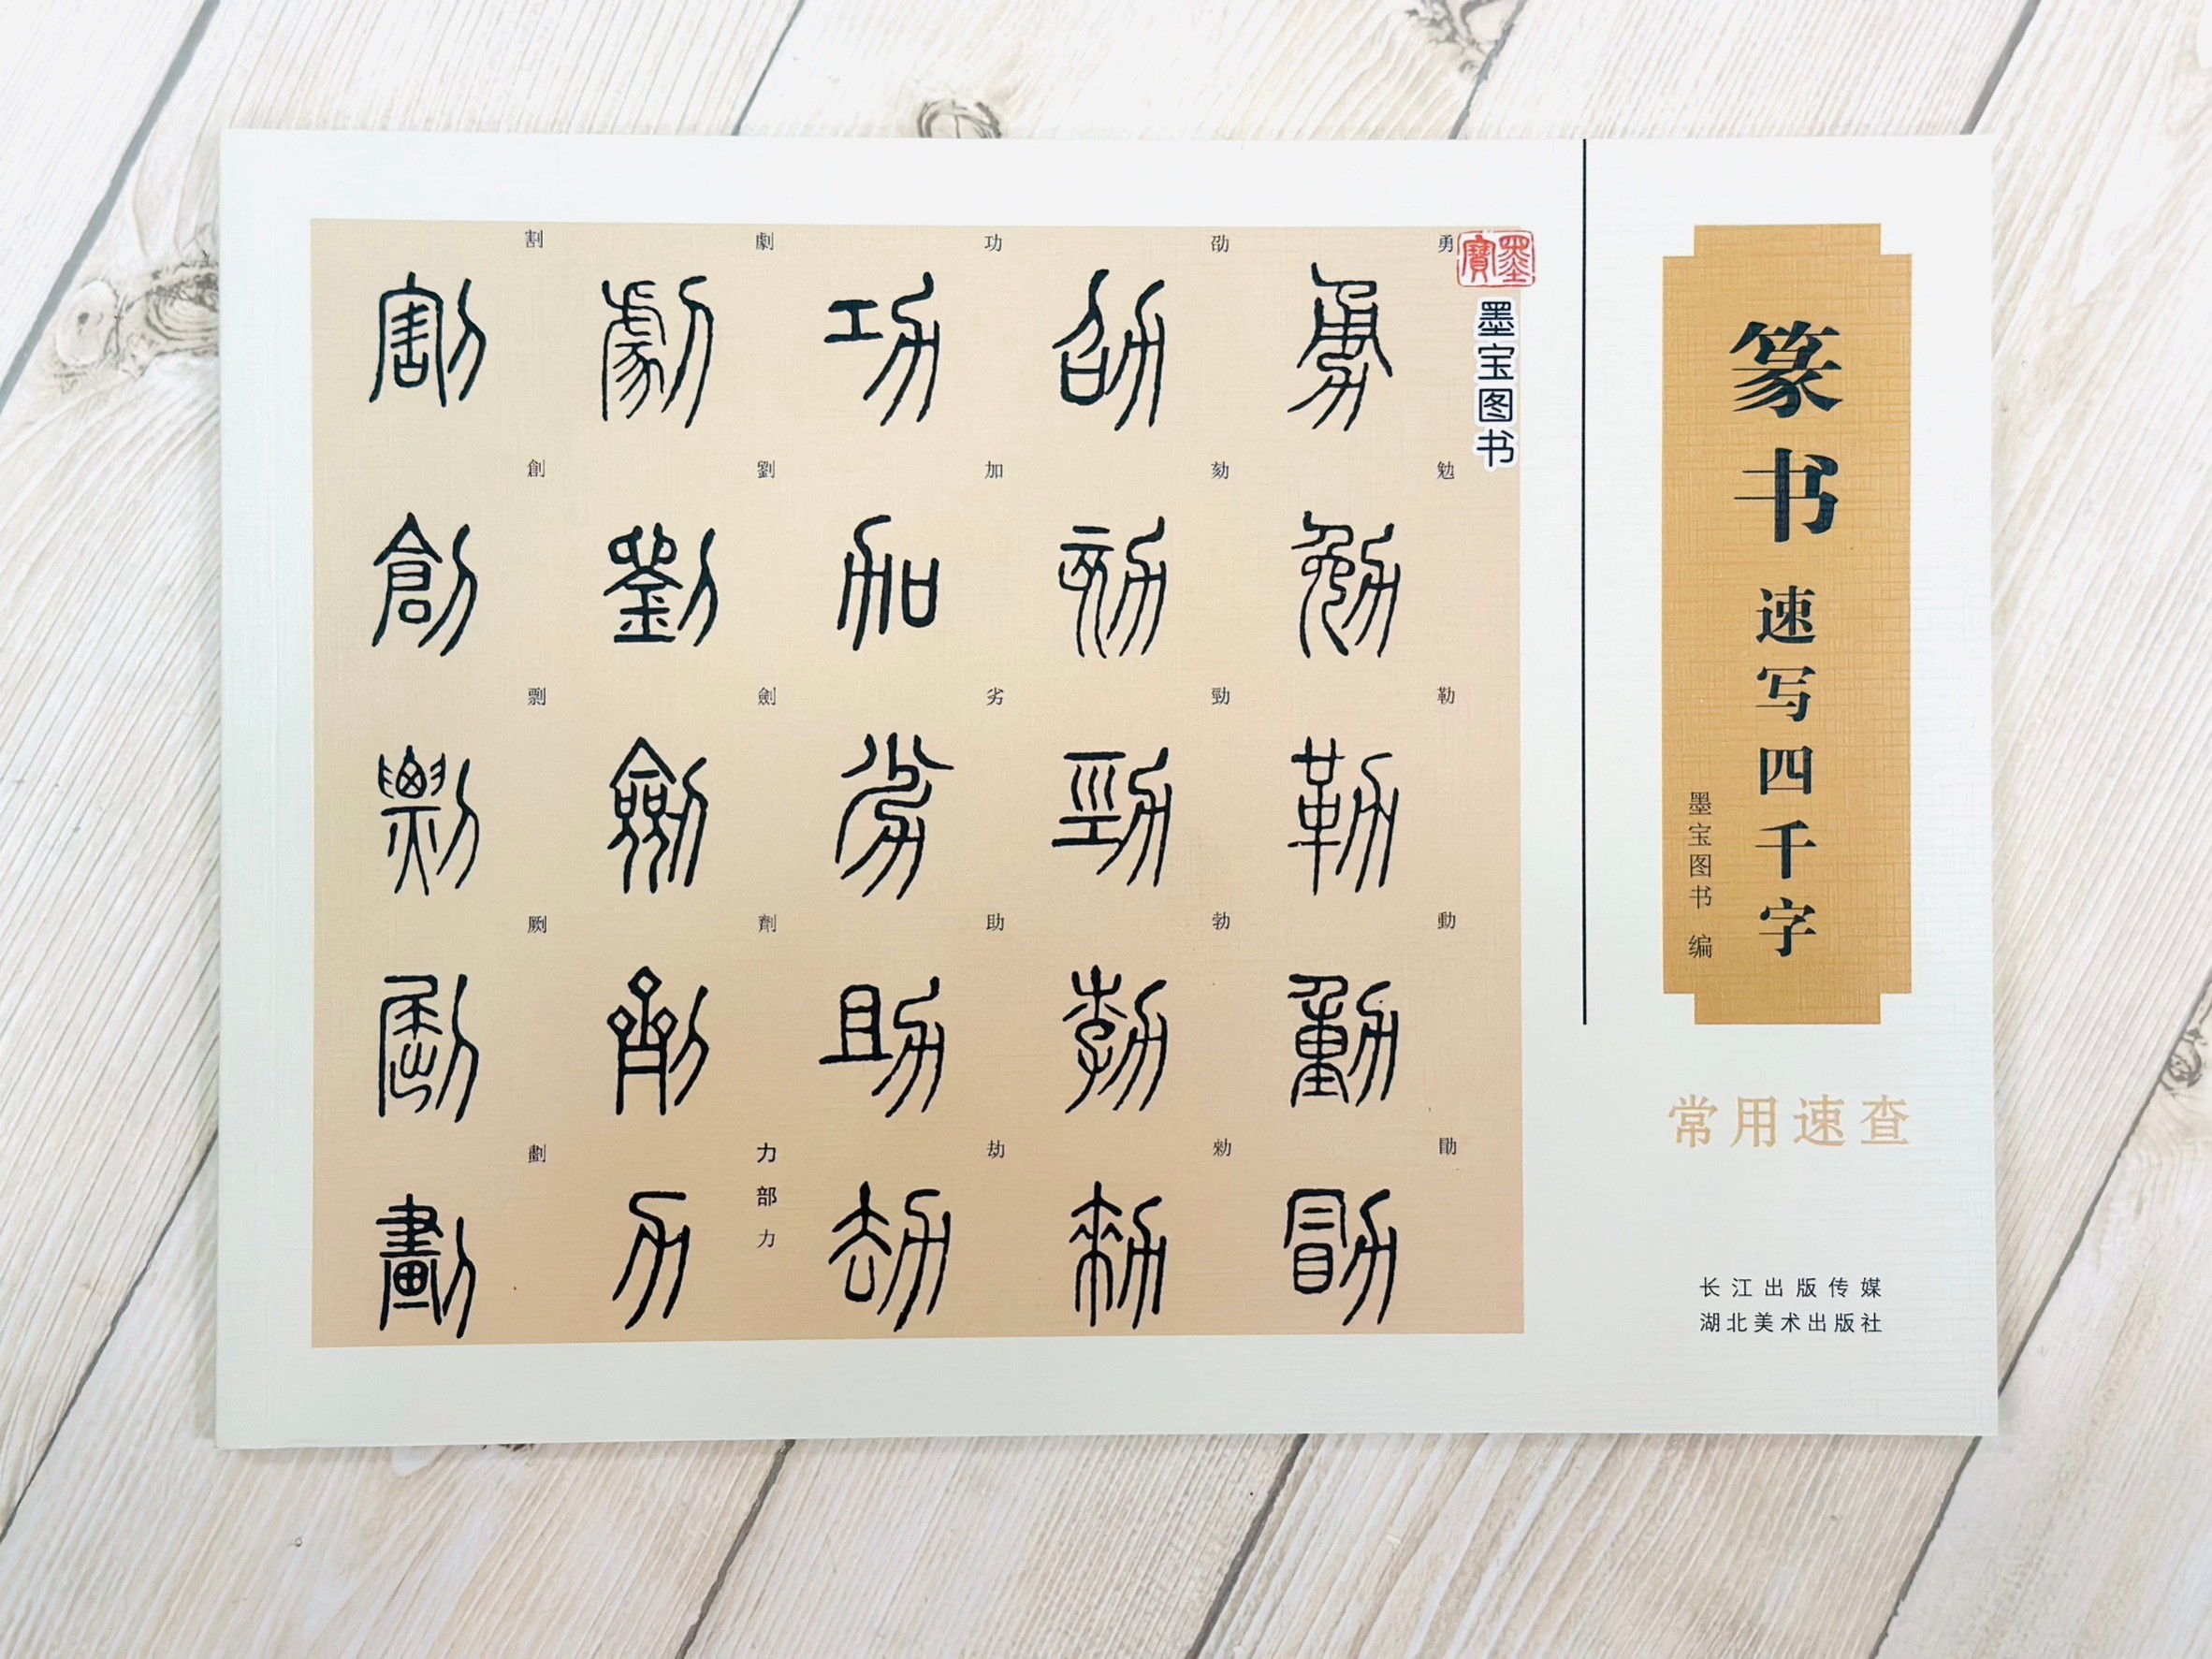 篆书
速写四千字
墨宝图书 编
常用速查
长江出版传媒
湖北美术出版社
墨寶
墨宝图书
割 劇 功 劭 勇
創 劉 加 劾 勉
剽 劍 劣 勁 勒
劂 劑 助 勃 動
劃 力部 力 劫 勑 勖